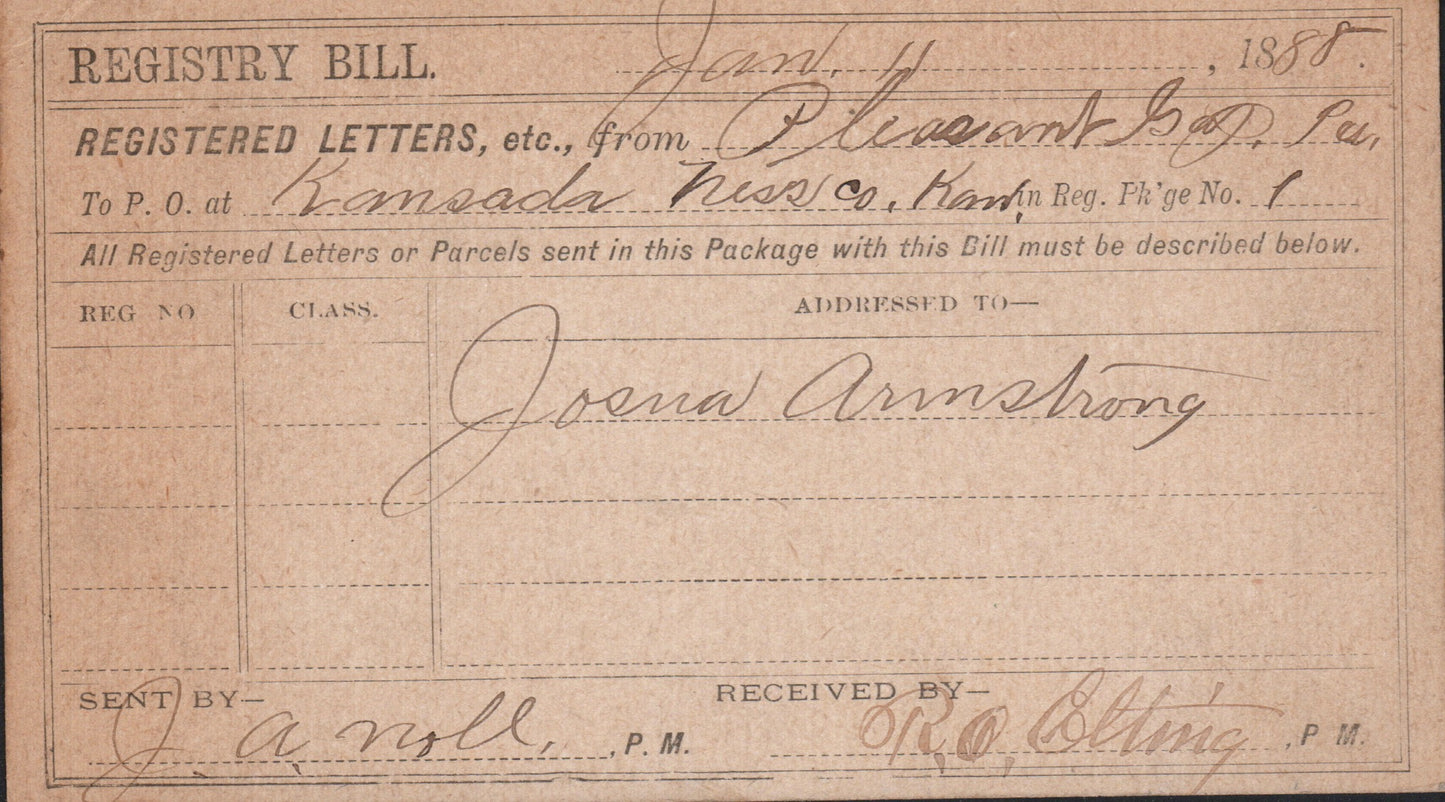 REGISTRY BILL. Jan. 11, 1888.
REGISTERED LETTERS, etc., from Pleasant Gap. Pa.
To P. O. at Kansada Ness Co. Kan. in Reg. Pk'ge No. 1
All Registered Letters or Parcels sent in this Package with this Bill must be described below.
REG NO CLASS. ADDRESSED TO—
Josua Armstrong
SENT BY— RECEIVED BY—
J. A. Noll, P. M. R. O. Elting, P M.